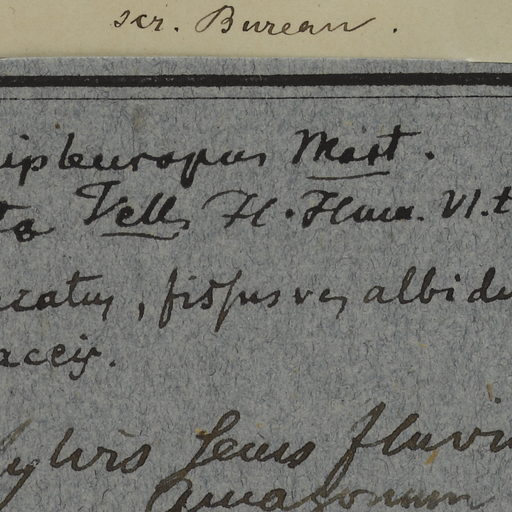 scr. Bureau.
ipleuropus Mart.
ta Vell. Fl. Flum. VI. t
albidu
aceis.
sylvis secus fluvi
Amazonum